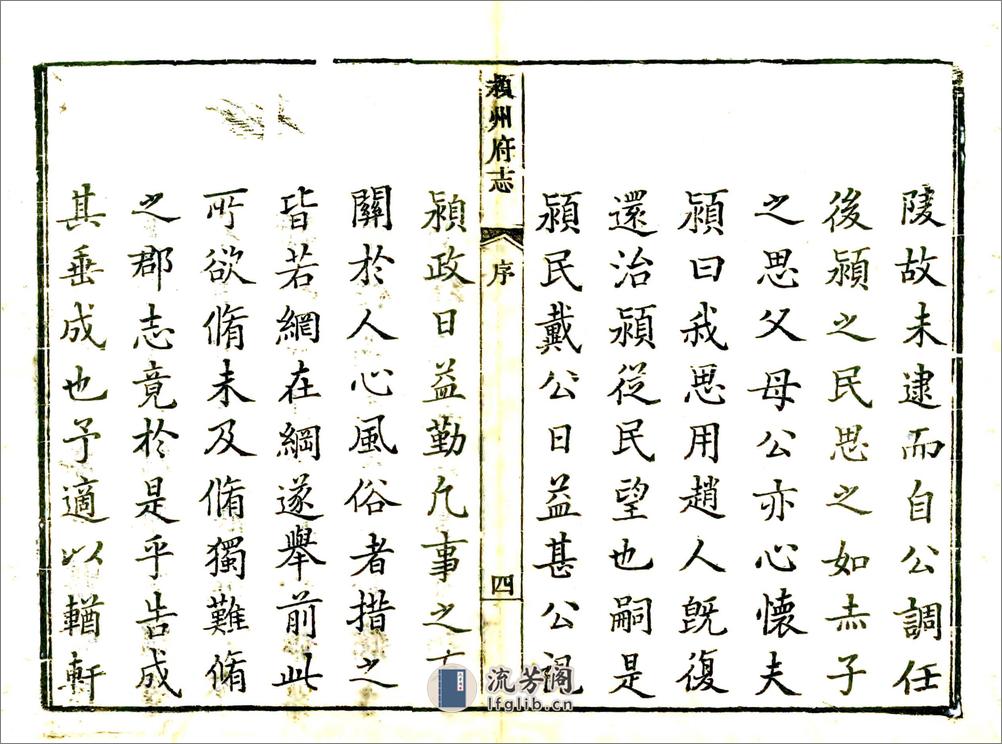 陵故未逮而自公調任
後潁之民思之如赤子
之思父母公亦心懷夫
潁曰我思用趙人既復
還治潁從民望也嗣是
潁民戴公日益甚公視
潁州府志
序
四
潁政日益勤凡事之有
關於人心風俗者措之
皆若網在綱遂舉前此
所欲脩未及脩獨難脩
之郡志竟於是乎告成
其垂成也予適以輶軒
流芳阁
lfglib.cn